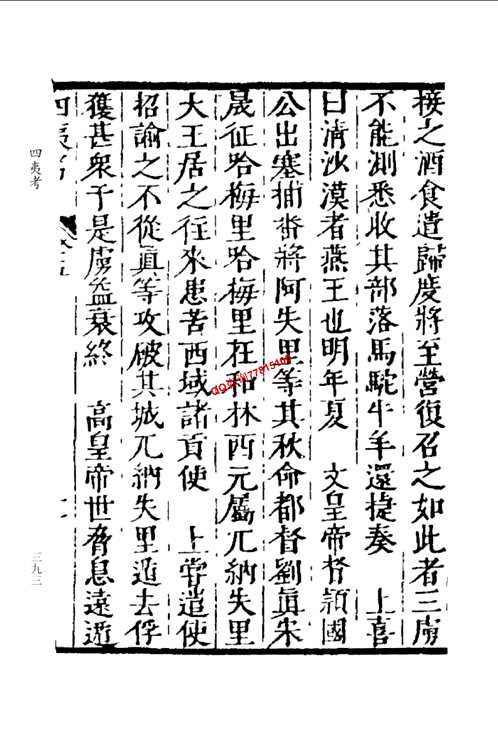 接之酒食遣歸度將至營復召之如此者三虜
不能測悉收其部落馬駝牛羊還捷奏　上喜
曰清沙漠者燕王也明年夏　文皇帝督潁國
公出塞捕番將阿失里等其秋命都督劉眞朱
晟征哈梅里哈梅里在和林西元屬兀納失里
大王居之往來患苦西域諸貢使　上嘗遣使
招諭之不從眞等攻破其城兀納失里遁去俘
獲甚衆于是虜益衰終　高皇帝世脅息遠遁
四夷考
四夷考
三九三